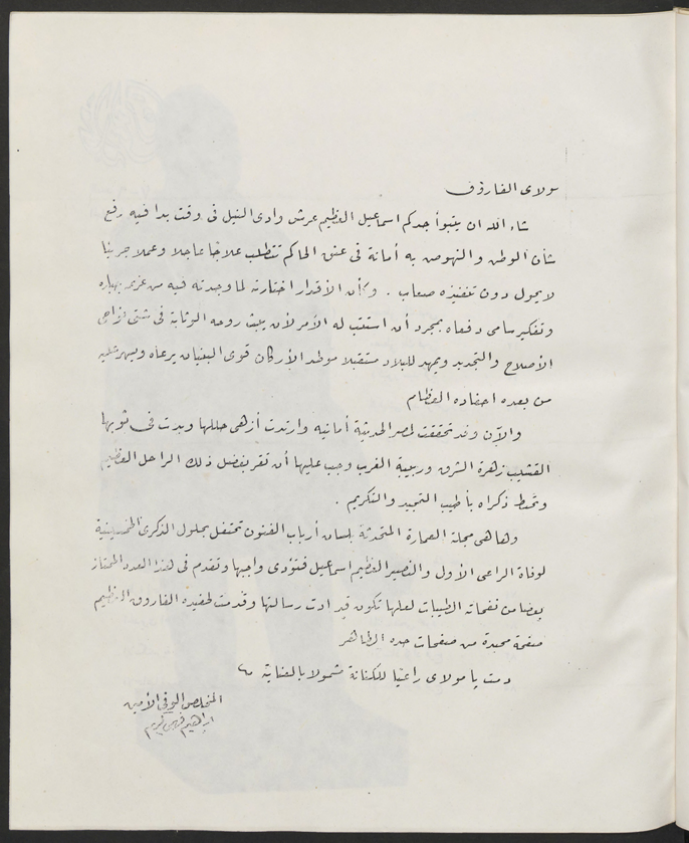 مولاى الفاروق
شاء الله ان يتبوأ جدكم اسماعيل العظيم عرش وادى النيل فى وقت بدا فيه رفع
شأن الوطن والنهوض به أمانة فى عنق الحاكم تتطلب علاجا عاجلا وعملا جريئا
لا يحول دون تنفيذه صعاب . وكأن الأقدار اختارته لما وجدته فيه من عزم
وتفكير سامى دفعاه بمجرد أن استتب له الأمر لأن يبث روحه الوثابة فى شتى نواحى
الأصلاح والتجديد ويمهد للبلاد مستقبلا موطد الأركان قوى البنيان يرعاه ويسهر عليه
من بعده احفاده العظام
والآن وقد تحققت لمصر الحديثة أمانيه وارتدت أزهى حللها وبدت فى ثوبها
القشيب زهرة الشرق وربيبة الغرب وجب عليها أن تقر بفضل ذلك الراحل العظيم
وتحيط ذكراه بأطيب التمجيد والتكريم .
وها هى مجلة العمارة المتحدثة بلسان أرباب الفنون تحتفل بحلول الذكرى الخمسينية
لوفاة الراعى الأول والنصير العظيم اسماعيل فتؤدى واجبها وتقدم فى هذا العدد الممتاز
بعضا من نفحاته الطيبات لعلها تكون قد ادت رسالتها وقدمت لحفيده الفاروق العظيم
صفحة مجيدة من صفحات جده الطاهر
دمت يا مولاى راعيا للكنانة مشمولا بالعناية
المخلص الوفى الأمين
ابراهيم فهمى كريم